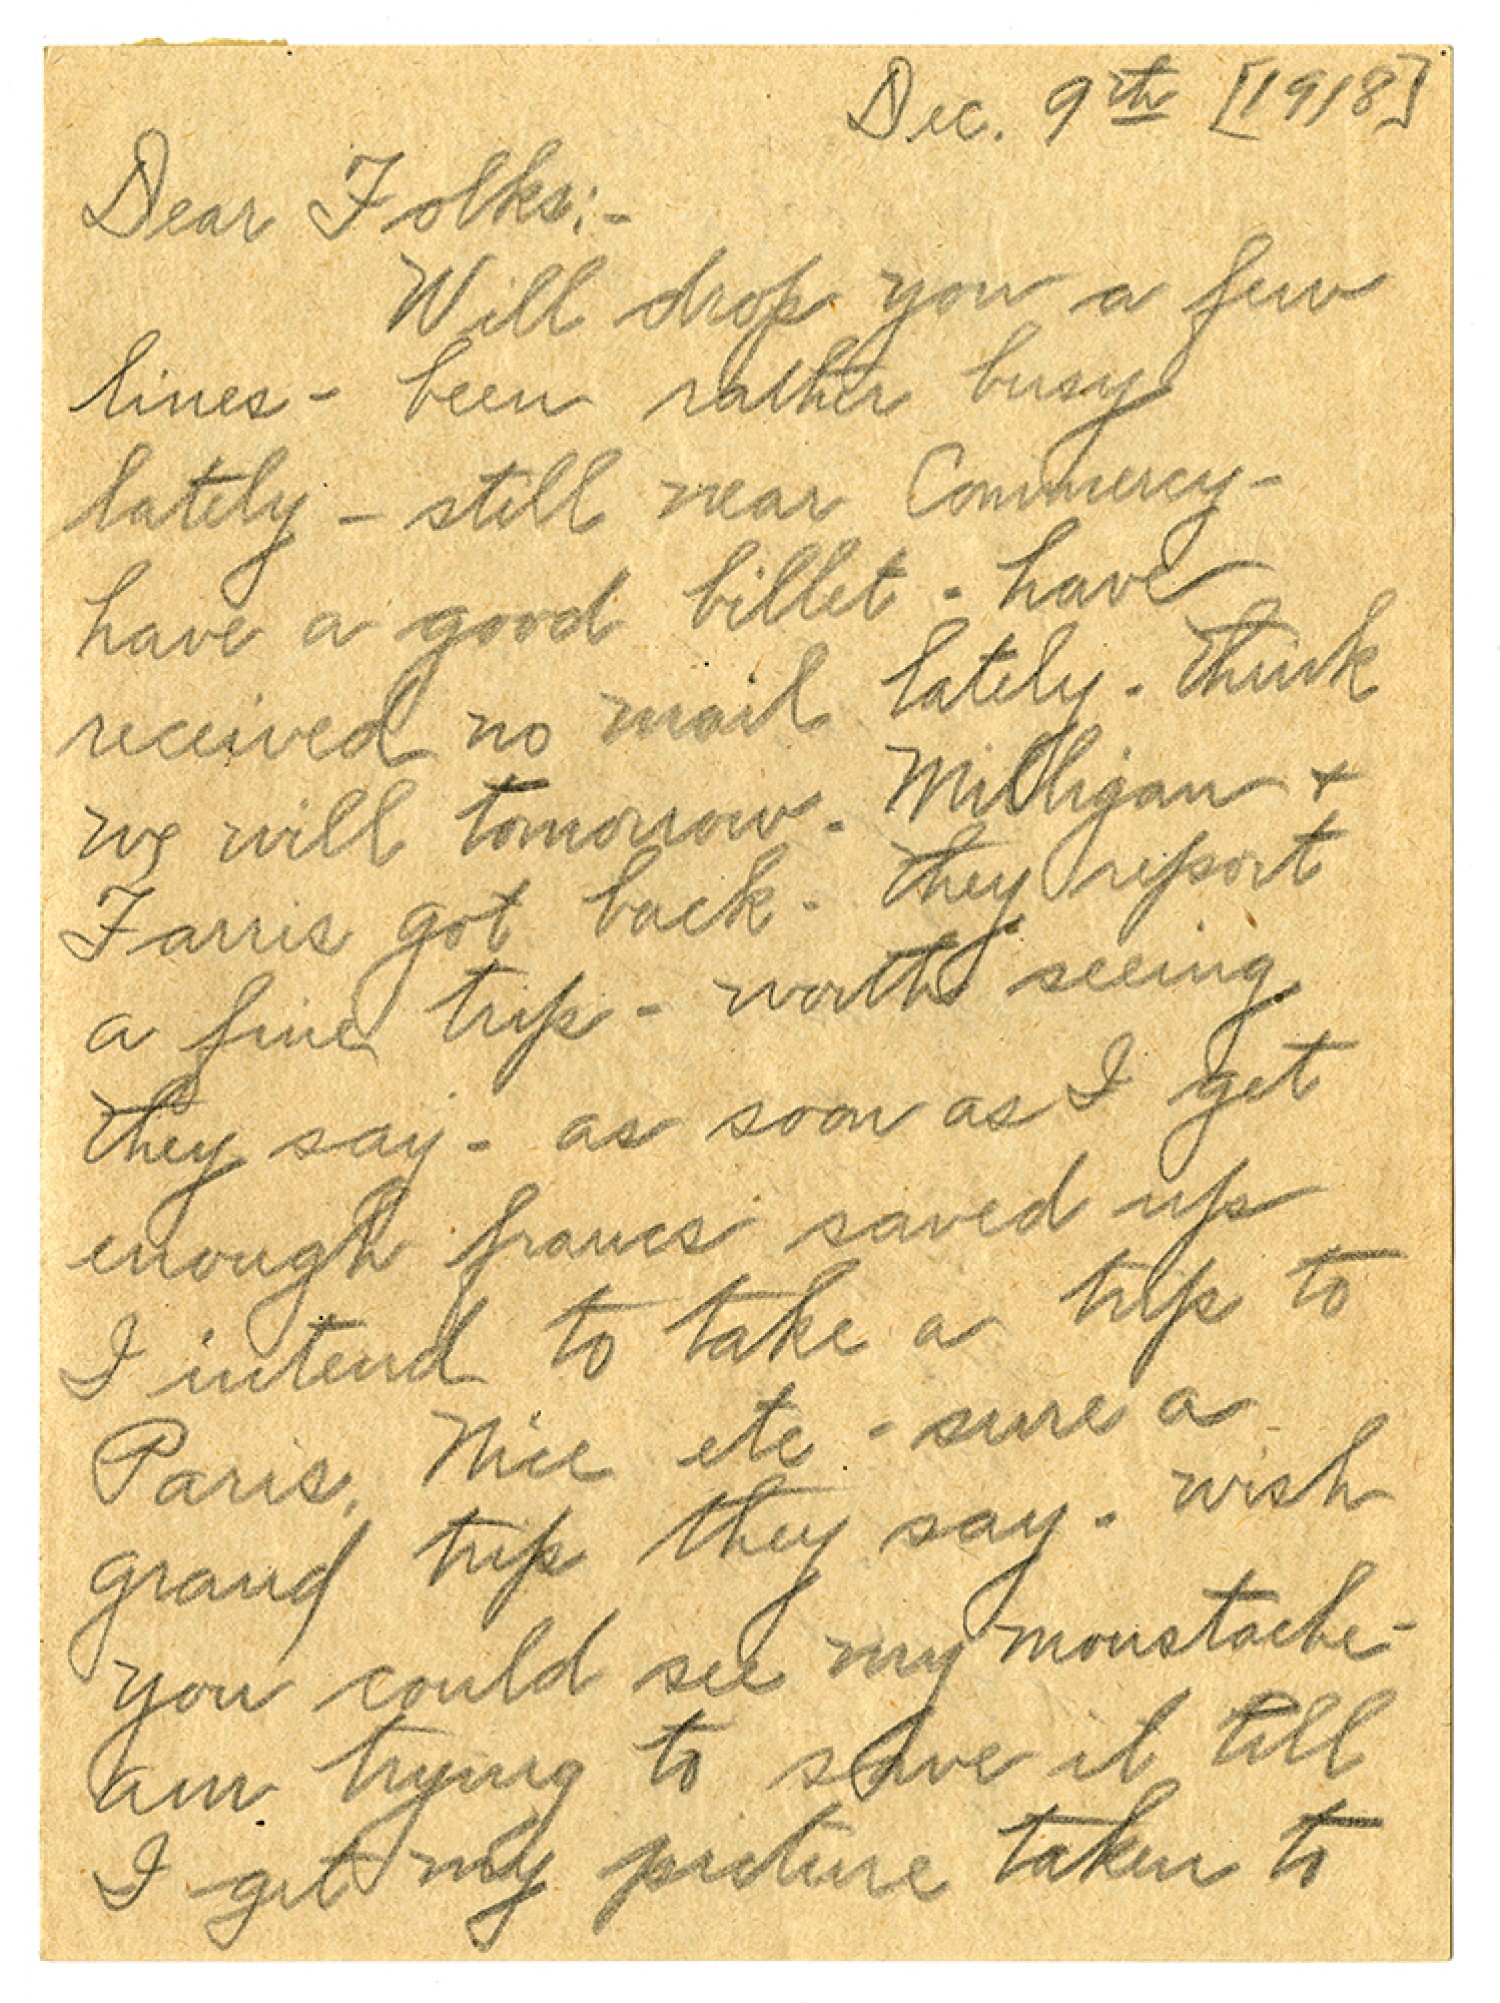 Dec. 9th [1918]
Dear Folks:-
Will drop you a few
lines - been rather busy
lately - still near Commercy -
have a good billet - have
received no mail lately - think
we will tomorrow - Milligan +
Farris got back - they report
a fine trip - worth seeing
they say - as soon as I get
enough francs saved up
I intend to take a trip to
Paris, Nice etc - sure a
grand trip they say - wish
you could see my moustache -
am trying to save it till
I get my picture taken to